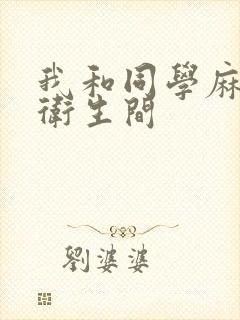 我和同學麻
衛生間
劉婆婆